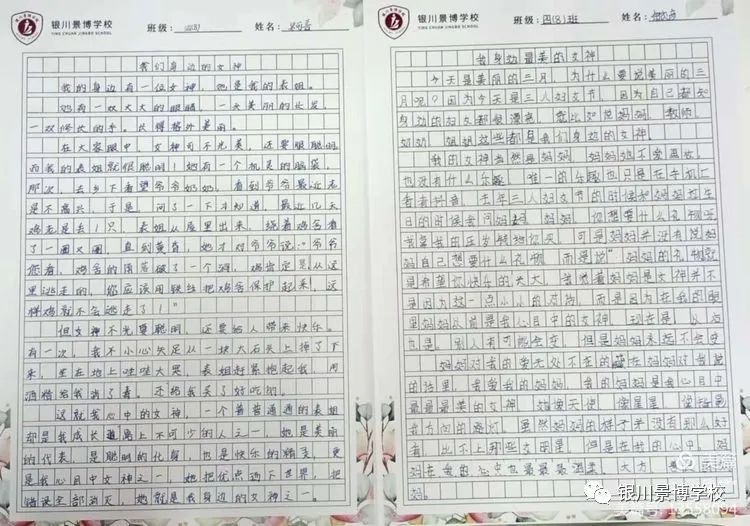 银川景博学校
YIN CHUAN JINGBO SCHOOL
班级：四(8)
姓名：
我们身边的女神
我的身边有一位女神，她是我的表姐。
她有一双大大的眼睛，一头美丽的长发，
一双修长的手。长得格外美丽。
在大家眼中，女神可不光美，还要很聪明，
而我的表姐就很聪明！她有一个机灵的脑袋，
那次，去乡下看望爷爷奶奶，看到爷爷最近老
是不高兴，于是，问了一下才知道，最近几天
鸡老是丢1只，表姐从屋里出来，绕着鸡舍看
了一圈又圈，直到黄昏，她才对爷爷说："爷爷
您看，鸡舍的角落破了一个洞，鸡肯定是从这
里逃走的，您应该用铁丝把鸡舍保护起来！这
样鸡就不会逃走了！"
但女神不光要聪明，还要给人带来快乐。
有一次，我不小心失足从一块大石头上摔了下
来，坐在地上哇哇大哭，表姐赶紧抱起我，用
酒精给我消了毒。还给我买了好吃的。
这就我心中的女神，一个普普通通的表姐
却是我成长道路上不可少的人之一，她是美丽
的代表，是聪明的化身，也是快乐的精灵，更
是我心目中女神之一，她把优点洒下世界，把
错误全部消灭，她就是我身边的女神之一。
银川景博学校
YIN CHUAN JINGBO SCHOOL
班级：四(8)班
姓名：
我身边最美的女神
今天是美丽的三月，为什么要说美丽的三
月呢？因为今天是三八妇女节，因为自己都知
身边的妇女都很漂亮，就比如说妈妈、教师、
奶奶、姐姐这些都是我们身边的女神。
我的女神当然是妈妈，妈妈她不爱画妆，
也没有什么乐趣，唯一的乐趣也只是在手机上
看看抖音，去年三八妇女节的时候和妈妈过生
日的时候我问妈妈：妈妈，你想要什么礼物呢
我拿我的压岁钱给你买，可是妈妈并没有说妈
妈自己想要什么礼物，而是说"妈妈的礼物就
是希望你快乐的长大，我觉着妈妈是女神并不
是因为这一点小小的对待，而是因为在我的眼
里妈妈从前是我心目中的女神，现在是，以后
也是。别人有可能会变，但是妈妈永远不会变
妈妈对我的爱无处不在的 在妈妈对我说
的话里，我爱我的妈妈，我的妈妈是我心目中
最最最美的女神，她像天使，像星星，像指引
我方向的路灯，虽然妈妈的样子并没有那么好
看，比不上那些女明星，但是在我的心中，妈
妈在我的心中也最最最温柔、大方
妈。
银川景博学校